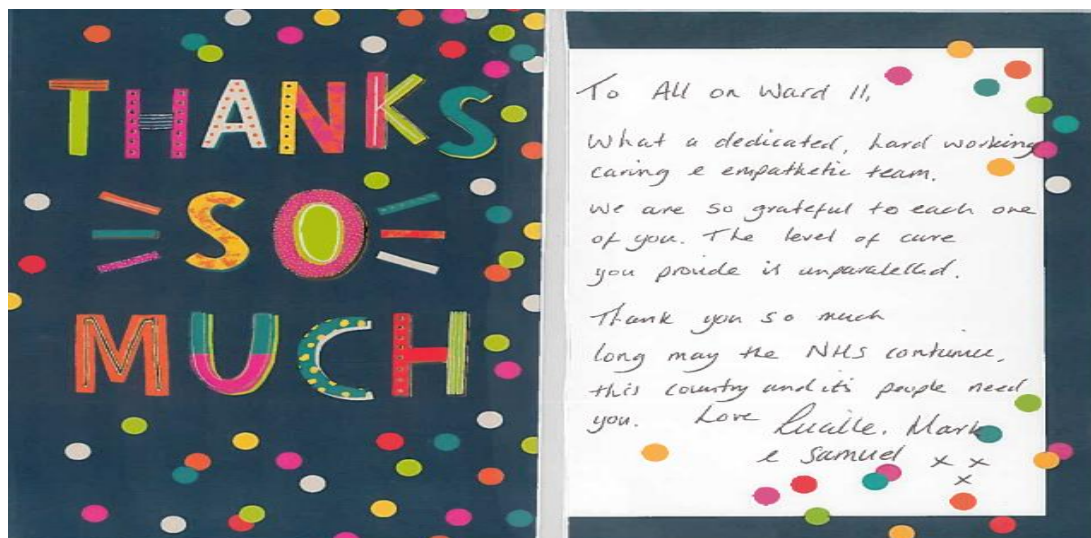 THANKS
SO
MUCH
To All on Ward 11,
What a dedicated, hard working
caring e empathetic team.
We are so grateful to each one
of you. The level of care
you provide is unparalelled.
Thank you so much
long may the NHS continue,
this country and it's people need
you. Love Lucille, Mark
e Samuel x x
x